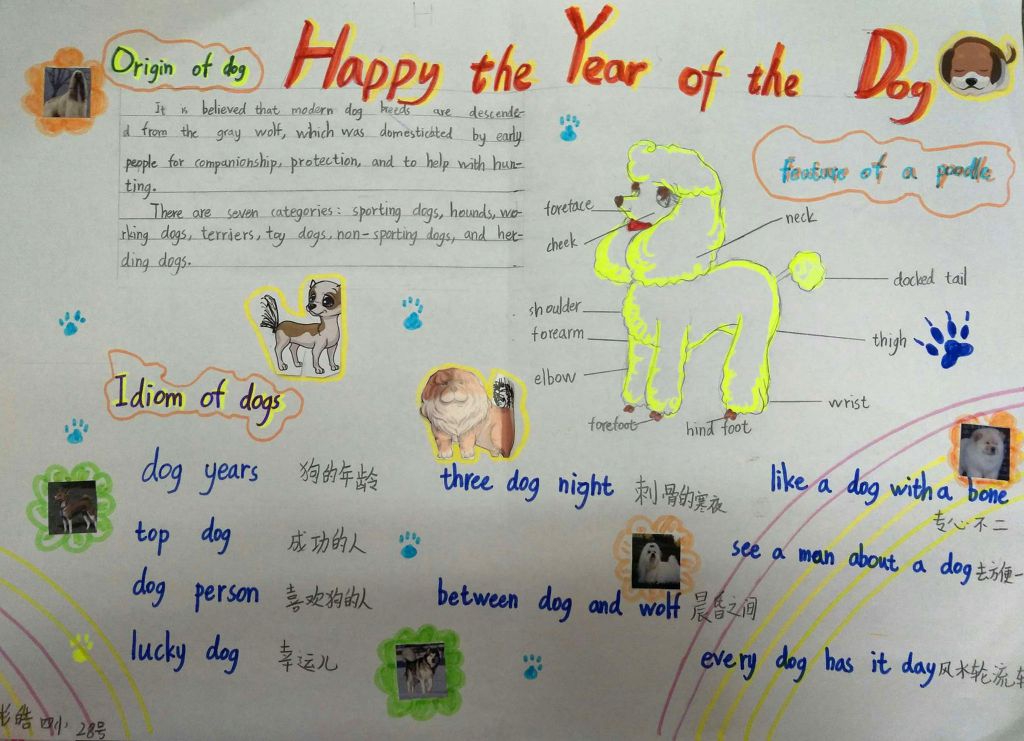 Happy the Year of the Dog
Origin of dog
It is believed that modern dog breeds are descende-
d from the gray wolf, which was domesticated by early
people for companionship, protection, and to help with hun-
ting.
There are seven categories: sporting dogs, hounds, wo-
rking dogs, terriers, toy dogs, non-sporting dogs, and her-
ding dogs.
feature of a poodle
foreface
cheek
neck
docked tail
shoulder
forearm
thigh
elbow
wrist
forefoot
hind foot
Idiom of dogs
dog years 狗的年龄
three dog night 刺骨的寒夜
like a dog with a bone
专心不二
top dog 成功的人
see a man about a dog 去方便一
dog person 喜欢狗的人
between dog and wolf 晨昏之间
lucky dog 幸运儿
every dog has it day 风水轮流转
皓 四小 28号